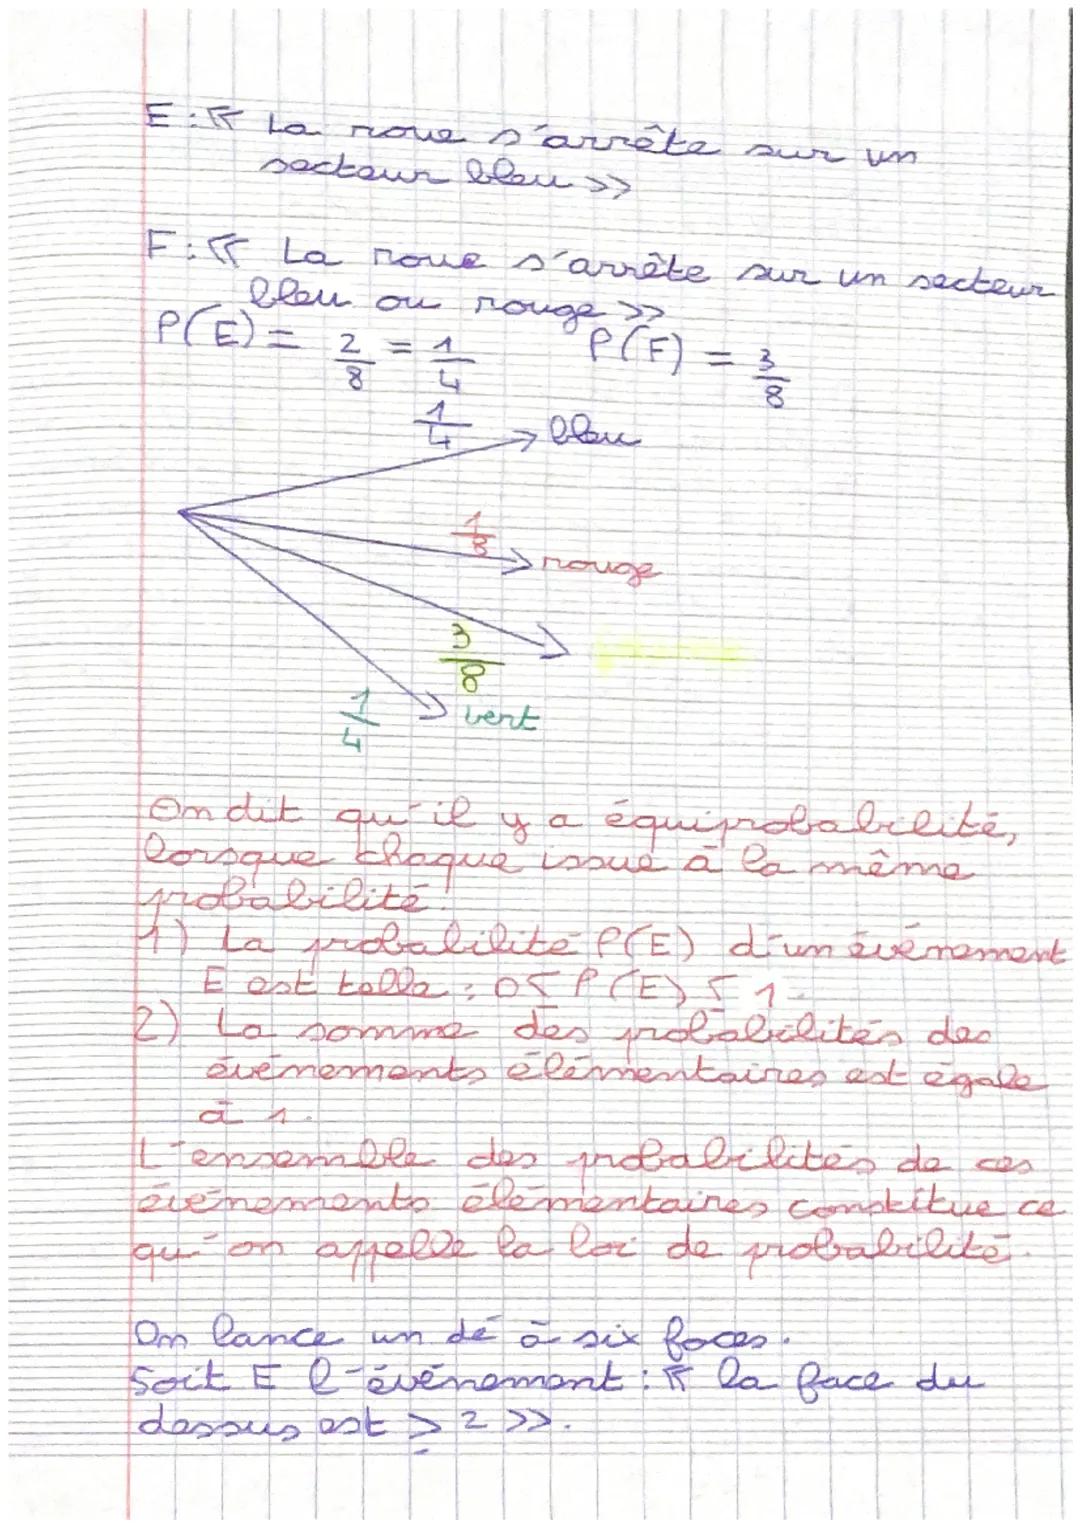 E : « La roue s'arrête sur un
secteur bleu >>
F : « La roue s'arrête sur un secteur
bleu ou rouge >>
P(E) = 2/8 = 1/4 P(F) = 3/8
1/4 bleu
1/8 rouge
3/8
1/4 vert
On dit qu'il y a équiprobabilité,
lorsque chaque issue à la même
probabilité.
1) La probabilité P(E) d'un événement
E est telle : 0 ≤ P(E) ≤ 1.
2) La somme des probabilités des
événements élémentaires est égale
à 1.
L'ensemble des probabilités de ces
événements élémentaires constitue ce
qu'on appelle la loi de probabilité.
On lance un dé à six faces.
Soit E l'événement : « la face du
dessus est ≥ 2 >>.